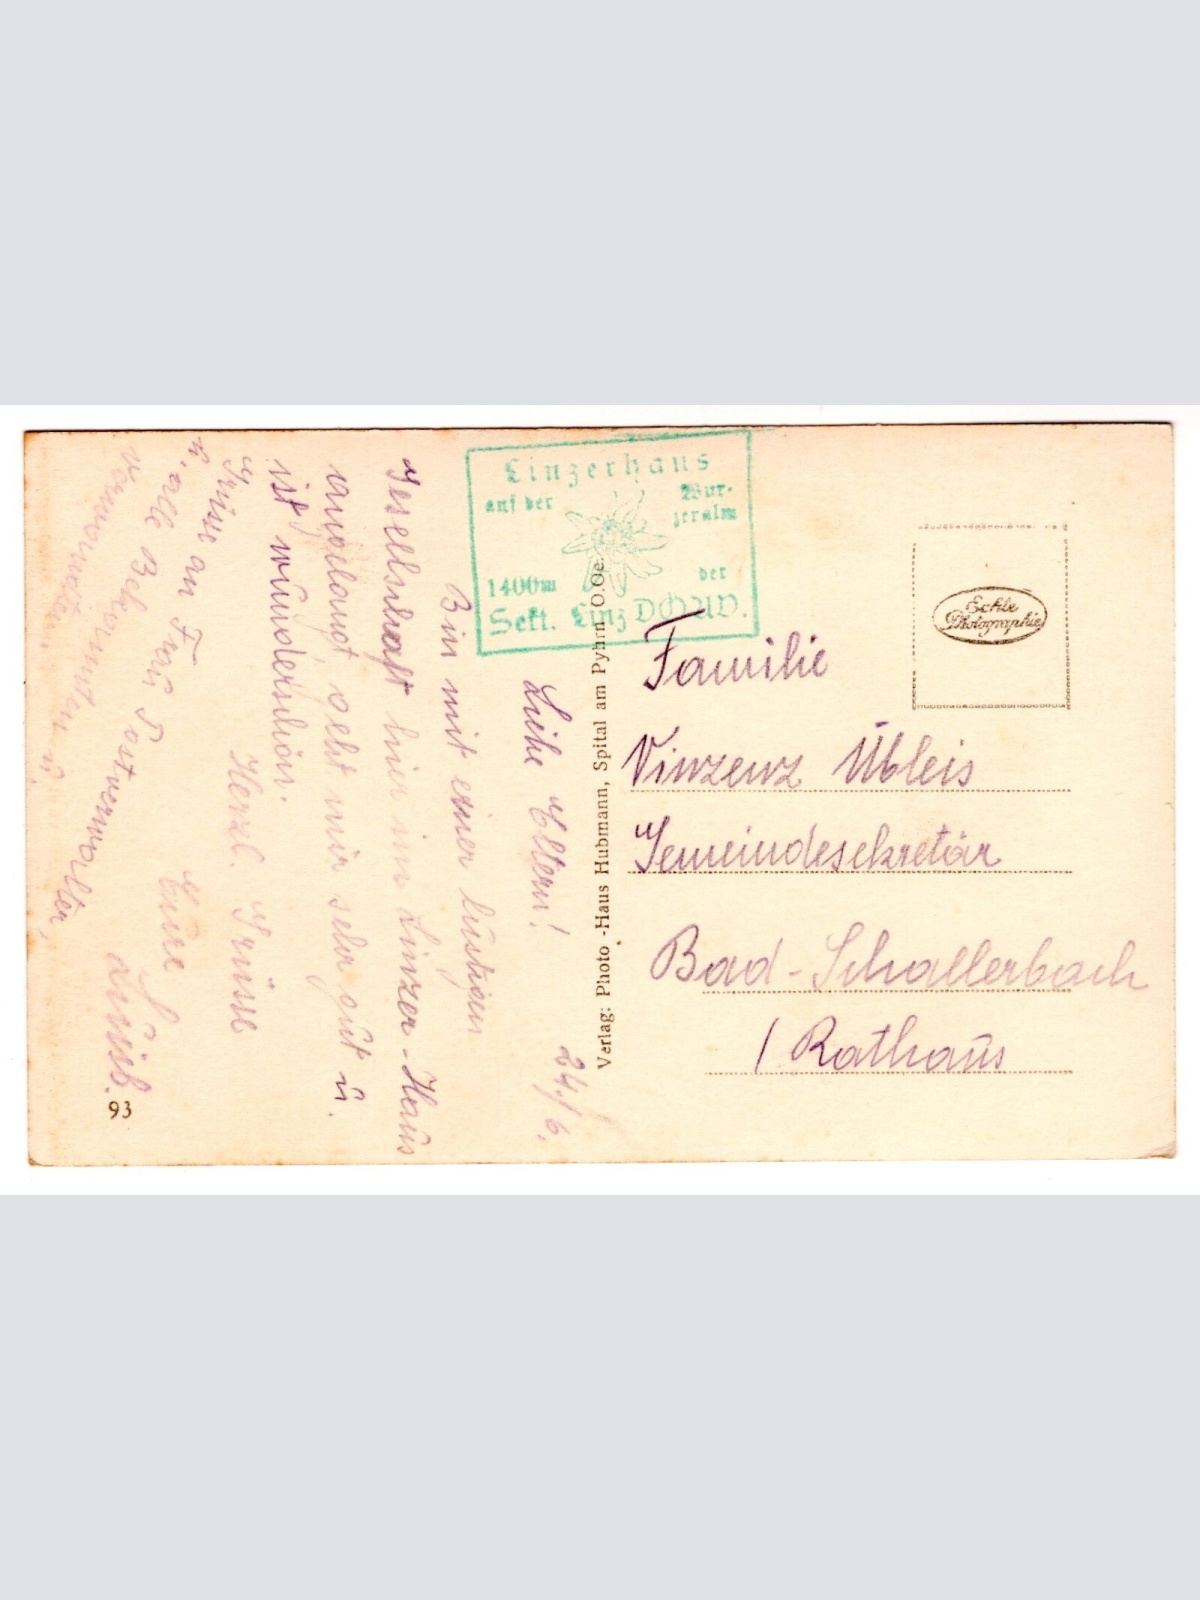 Linzerhaus
auf der Wur-
zeralm
1400m der
Sekt. Linz DÖAV.
24/6.
Liebe Eltern!
Bin mit einer lustigen
Gesellschaft hier im Linzer-Haus
angelangt, geht mir sehr gut u.
ist wunderschön.
Herzl. Grüsse
Eure
Luis.
Grüsse an Frau Postverwalter,
u. alle Bekannten u.
Verwandten
93
Verlag: Photo-Haus Hubmann, Spital am Pyhrn O.Oe.
Echte
Photographie
Familie
Vinzenz Übleis
Gemeindesekretär
Bad-Schallerbach
/ Rathaus